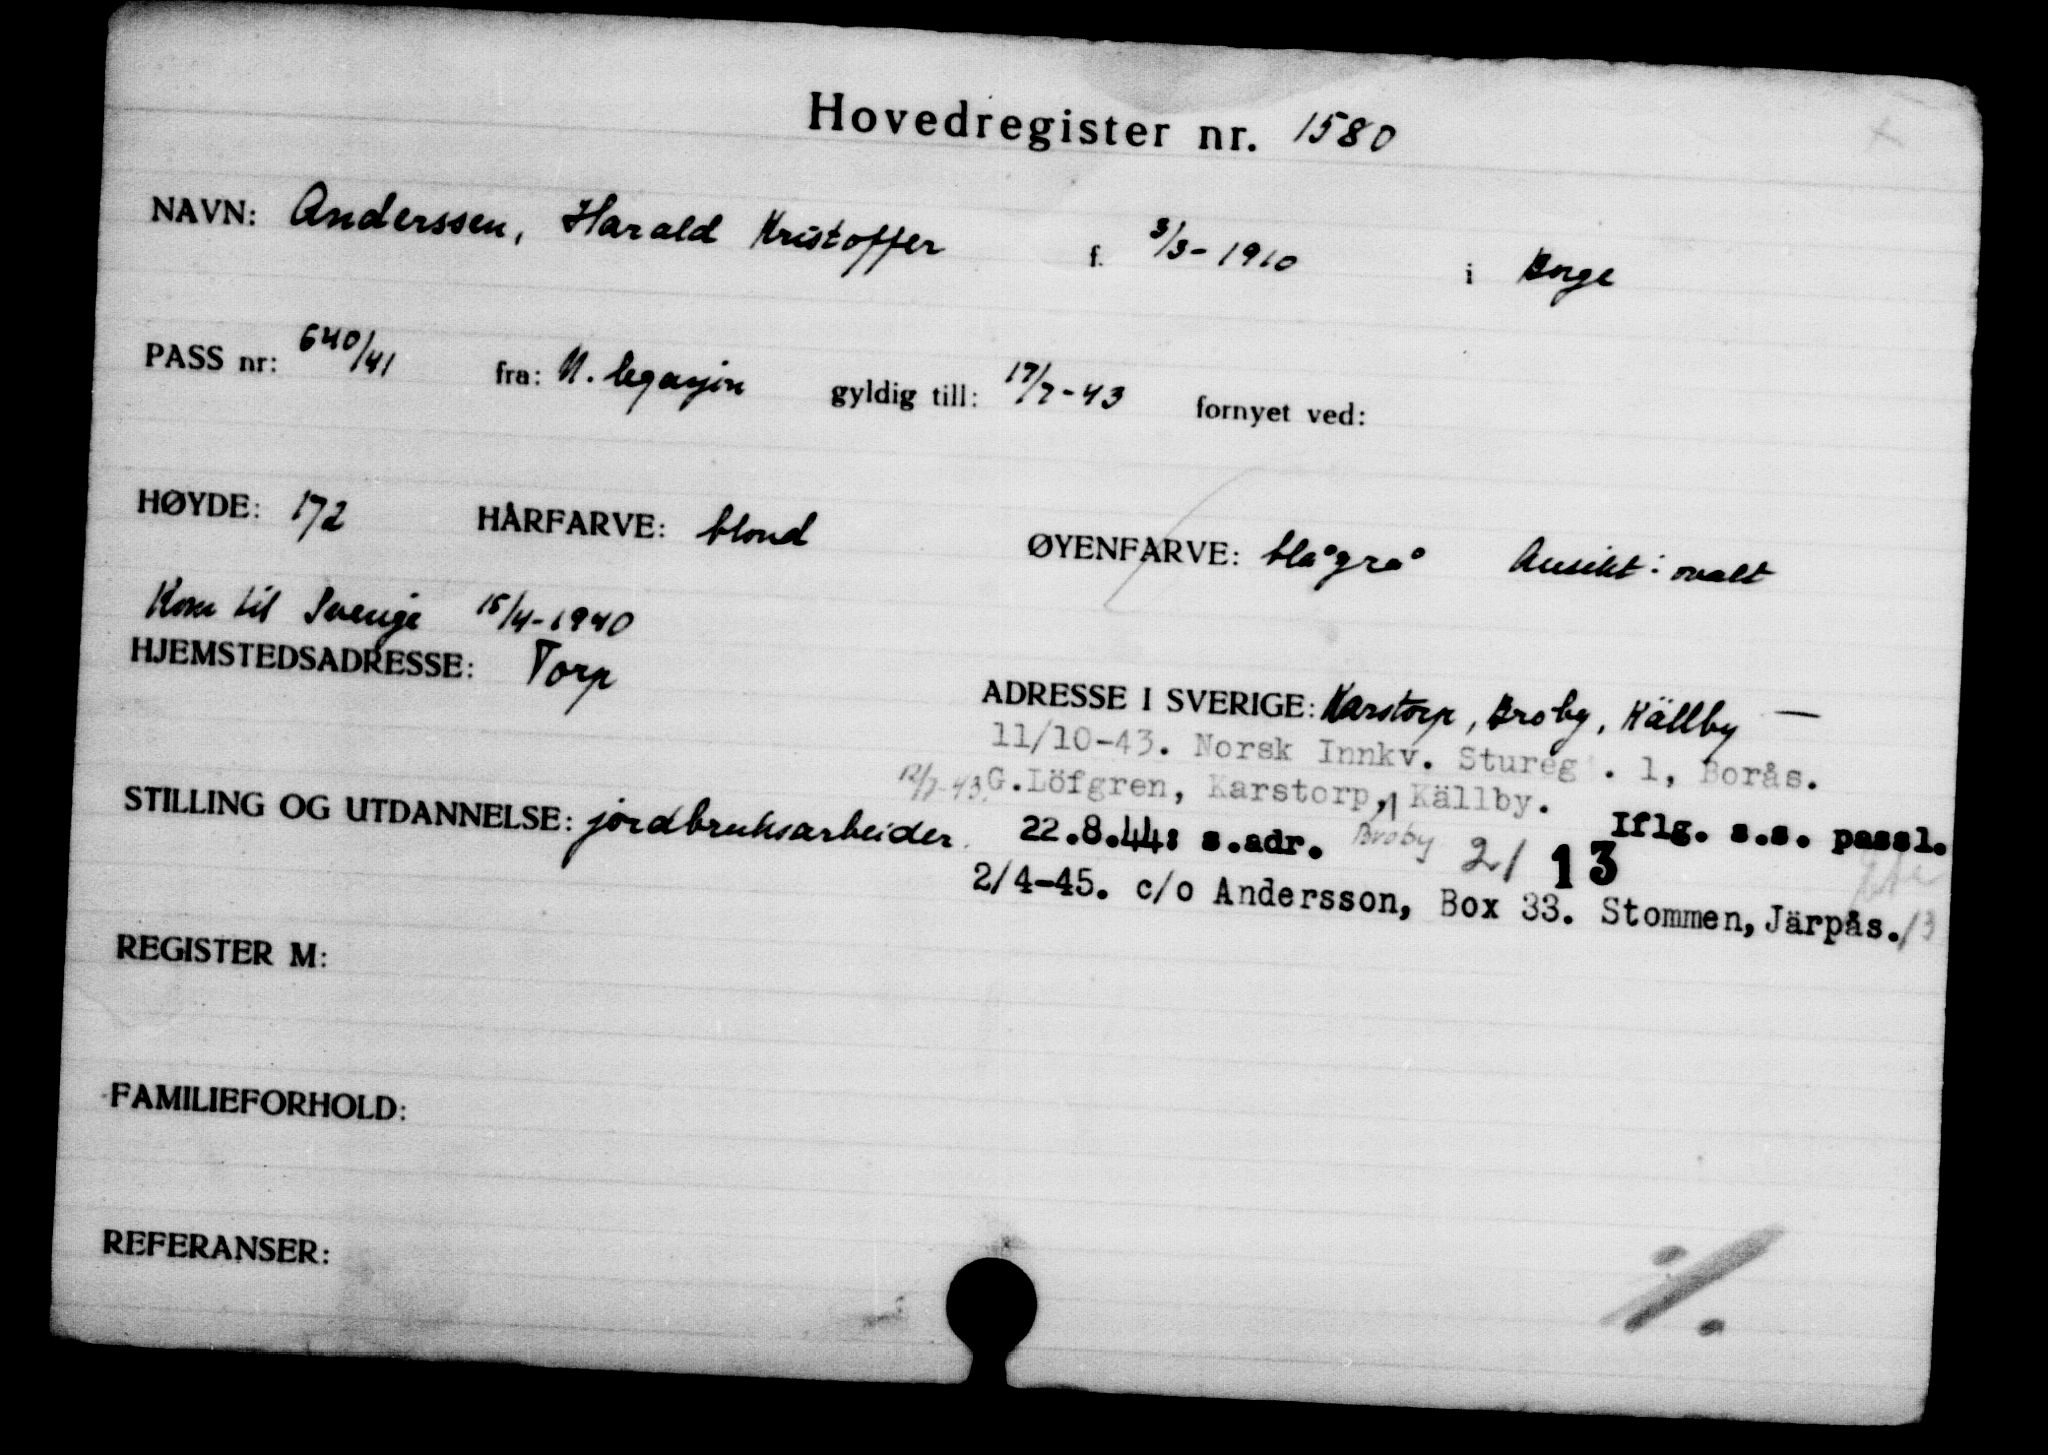 Hovedregister nr. 1580
NAVN: Anderssen, Harald Kristoffer f. 3/3-1910 i Borge
PASS nr: 640/41 fra: N. legasjon gyldig till: 17/7-43 fornyet ved:
HØYDE: 172 HÅRFARVE: blond ØYENFARVE: blågrå Ansikt: ovalt
Kom til Sverige 15/4-1940
HJEMSTEDSADRESSE: Torp
ADRESSE I SVERIGE: Karstorp, Broby, Källby —
11/10-43. Norsk Innkv. Stureg. 1, Borås.
12/7-43. G.Löfgren, Karstorp, Källby.
STILLING OG UTDANNELSE: jordbruksarbeider.
22.8.44: s.adr. Broby 21 13 Iflg. s.s. passl.
2/4-45. c/o Andersson, Box 33. Stommen, Järpås. /3
REGISTER M:
FAMILIEFORHOLD:
REFERANSER: